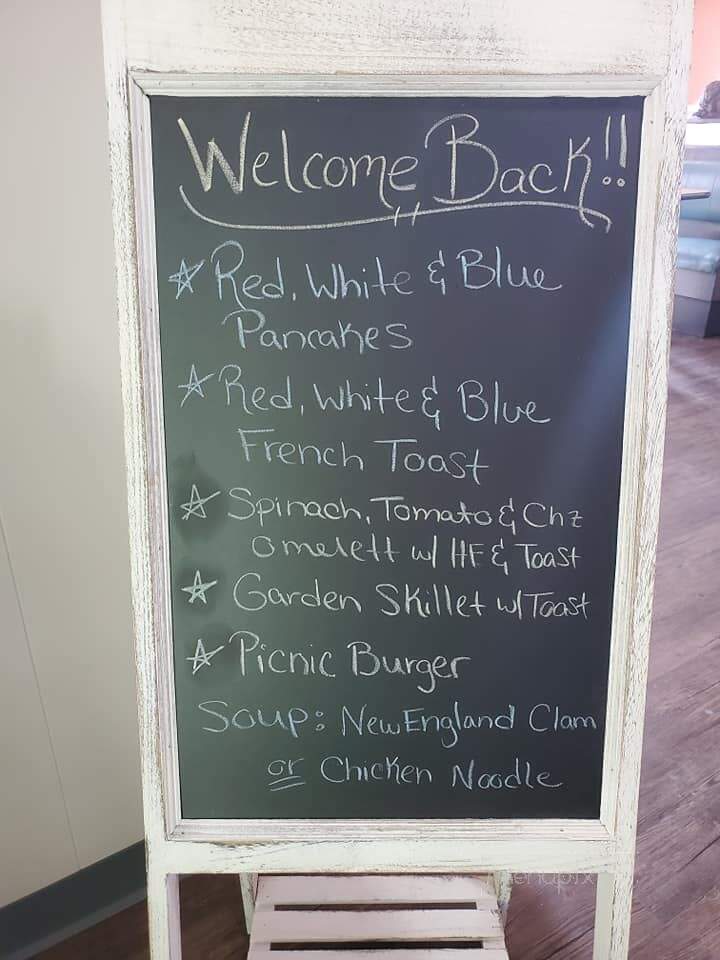 Welcome Back!!
☆ Red, White & Blue
Pancakes
☆ Red, White & Blue
French Toast
☆ Spinach, Tomato & Chz
Omelett w/ HF & Toast
☆ Garden Skillet w/ Toast
☆ Picnic Burger
Soup: New England Clam
or Chicken Noodle